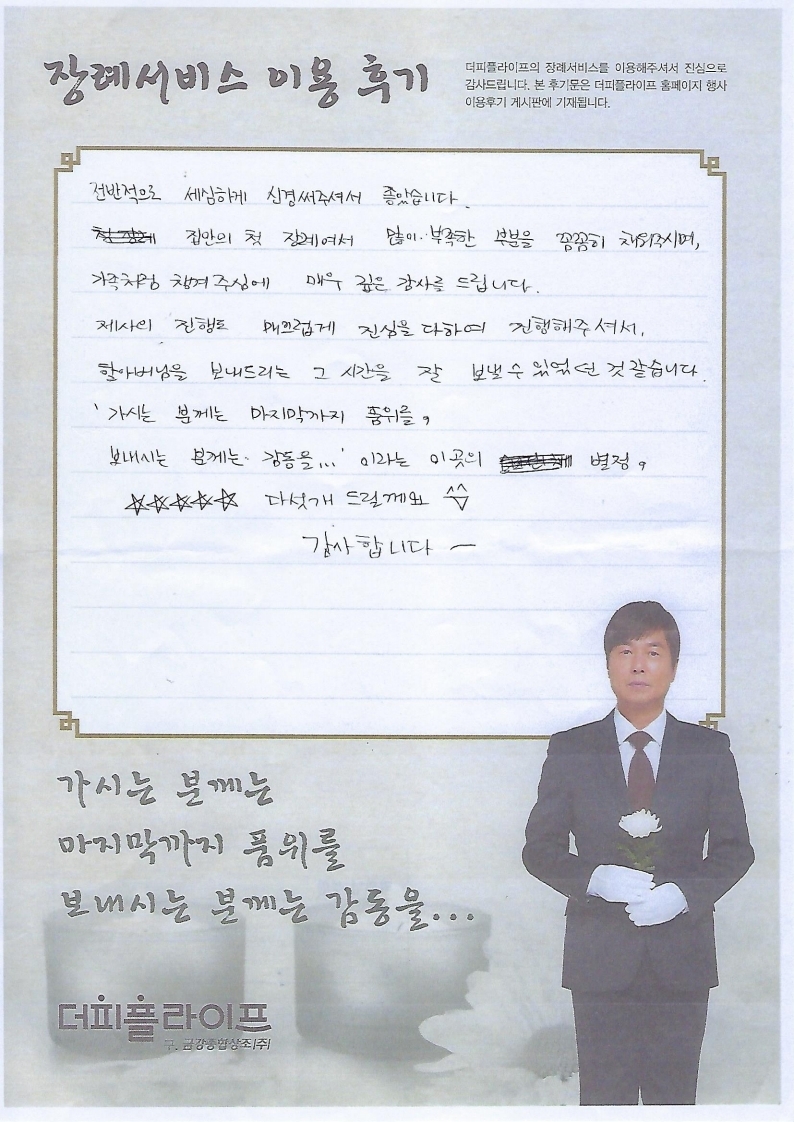 장례서비스 이용 후기
더피플라이프의 장례서비스를 이용해주셔서 진심으로
감사드립니다. 본 후기문은 더피플라이프 홈페이지 행사
이용후기 게시판에 기재됩니다.
전반적으로 세심하게 신경써주셔서 좋았습니다.
집안의 첫 장례여서 많이 부족한 부분을 꼼꼼히 채워주시며,
가족처럼 챙겨주심에 매우 깊은 감사를 드립니다.
제사의 진행도 매끄럽게 진심을 다하여 진행해주셔서,
할아버님을 보내드리는 그 시간을 잘 보낼 수 있었던 것 같습니다.
'가시는 분께는 마지막까지 품위를,
보내시는 분께는 감동을...' 이라는 이곳의 별점,
☆☆☆☆☆ 다섯개 드릴께요 ^^
감사합니다 ~
가시는 분께는
마지막까지 품위를
보내시는 분께는 감동을...
더피플라이프
구. 금강종합상조(주)